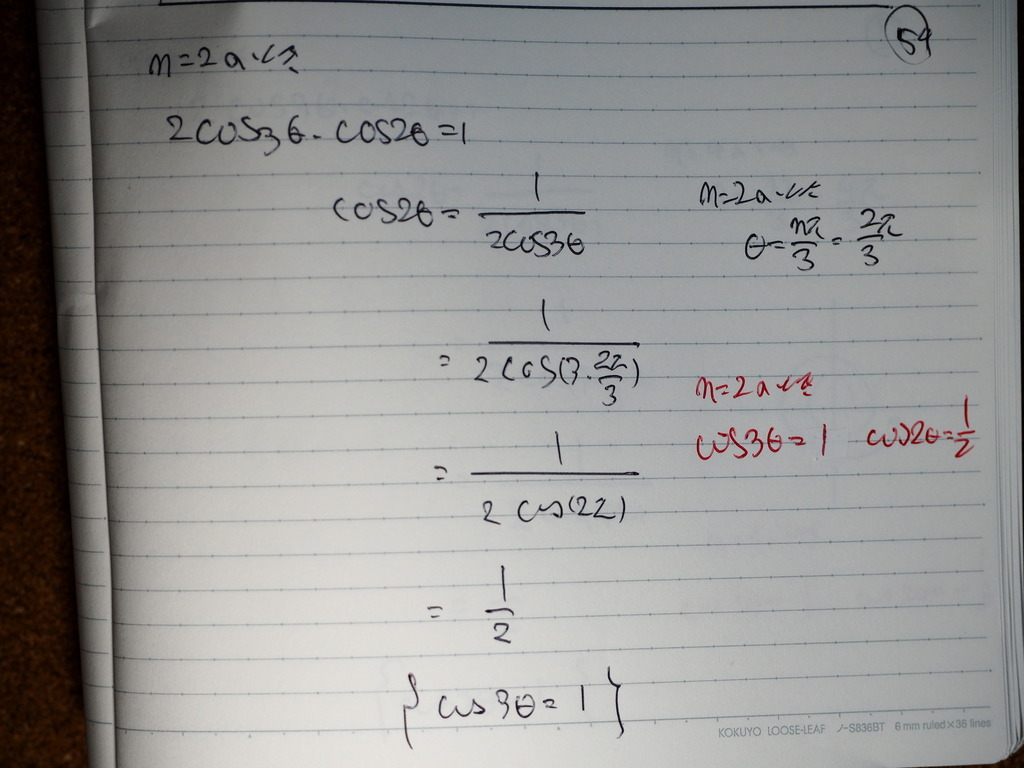 54
n=2のとき
2cos3θ・cos2θ=1
cos2θ= 1/2cos3θ
n=2のとき
θ=nπ/3=2π/3
= 1/2cos(3・2π/3)
n=2のとき
cos3θ=1 cos2θ=1/2
= 1/2cos(2π)
= 1/2
{cos3θ=1}
KOKUYO LOOSE-LEAF ノ-S836BT 6 mm ruled×36 lines